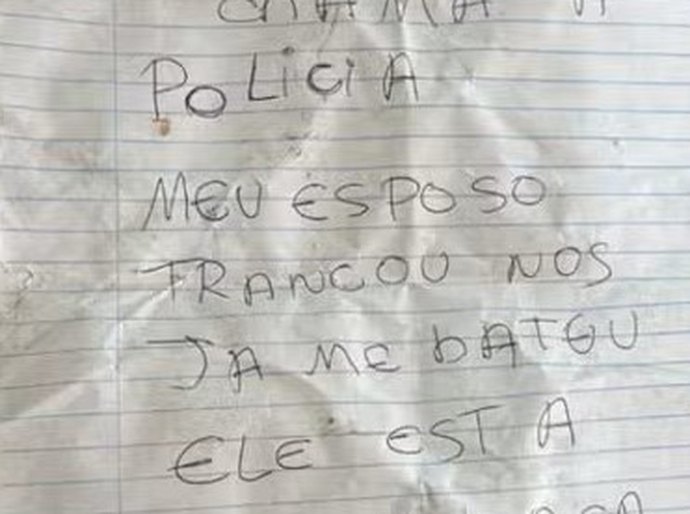 CHAMA A
POLICIA
MEU ESPOSO
TRANCOU NOS
JA ME bATEU
ELE ESTA